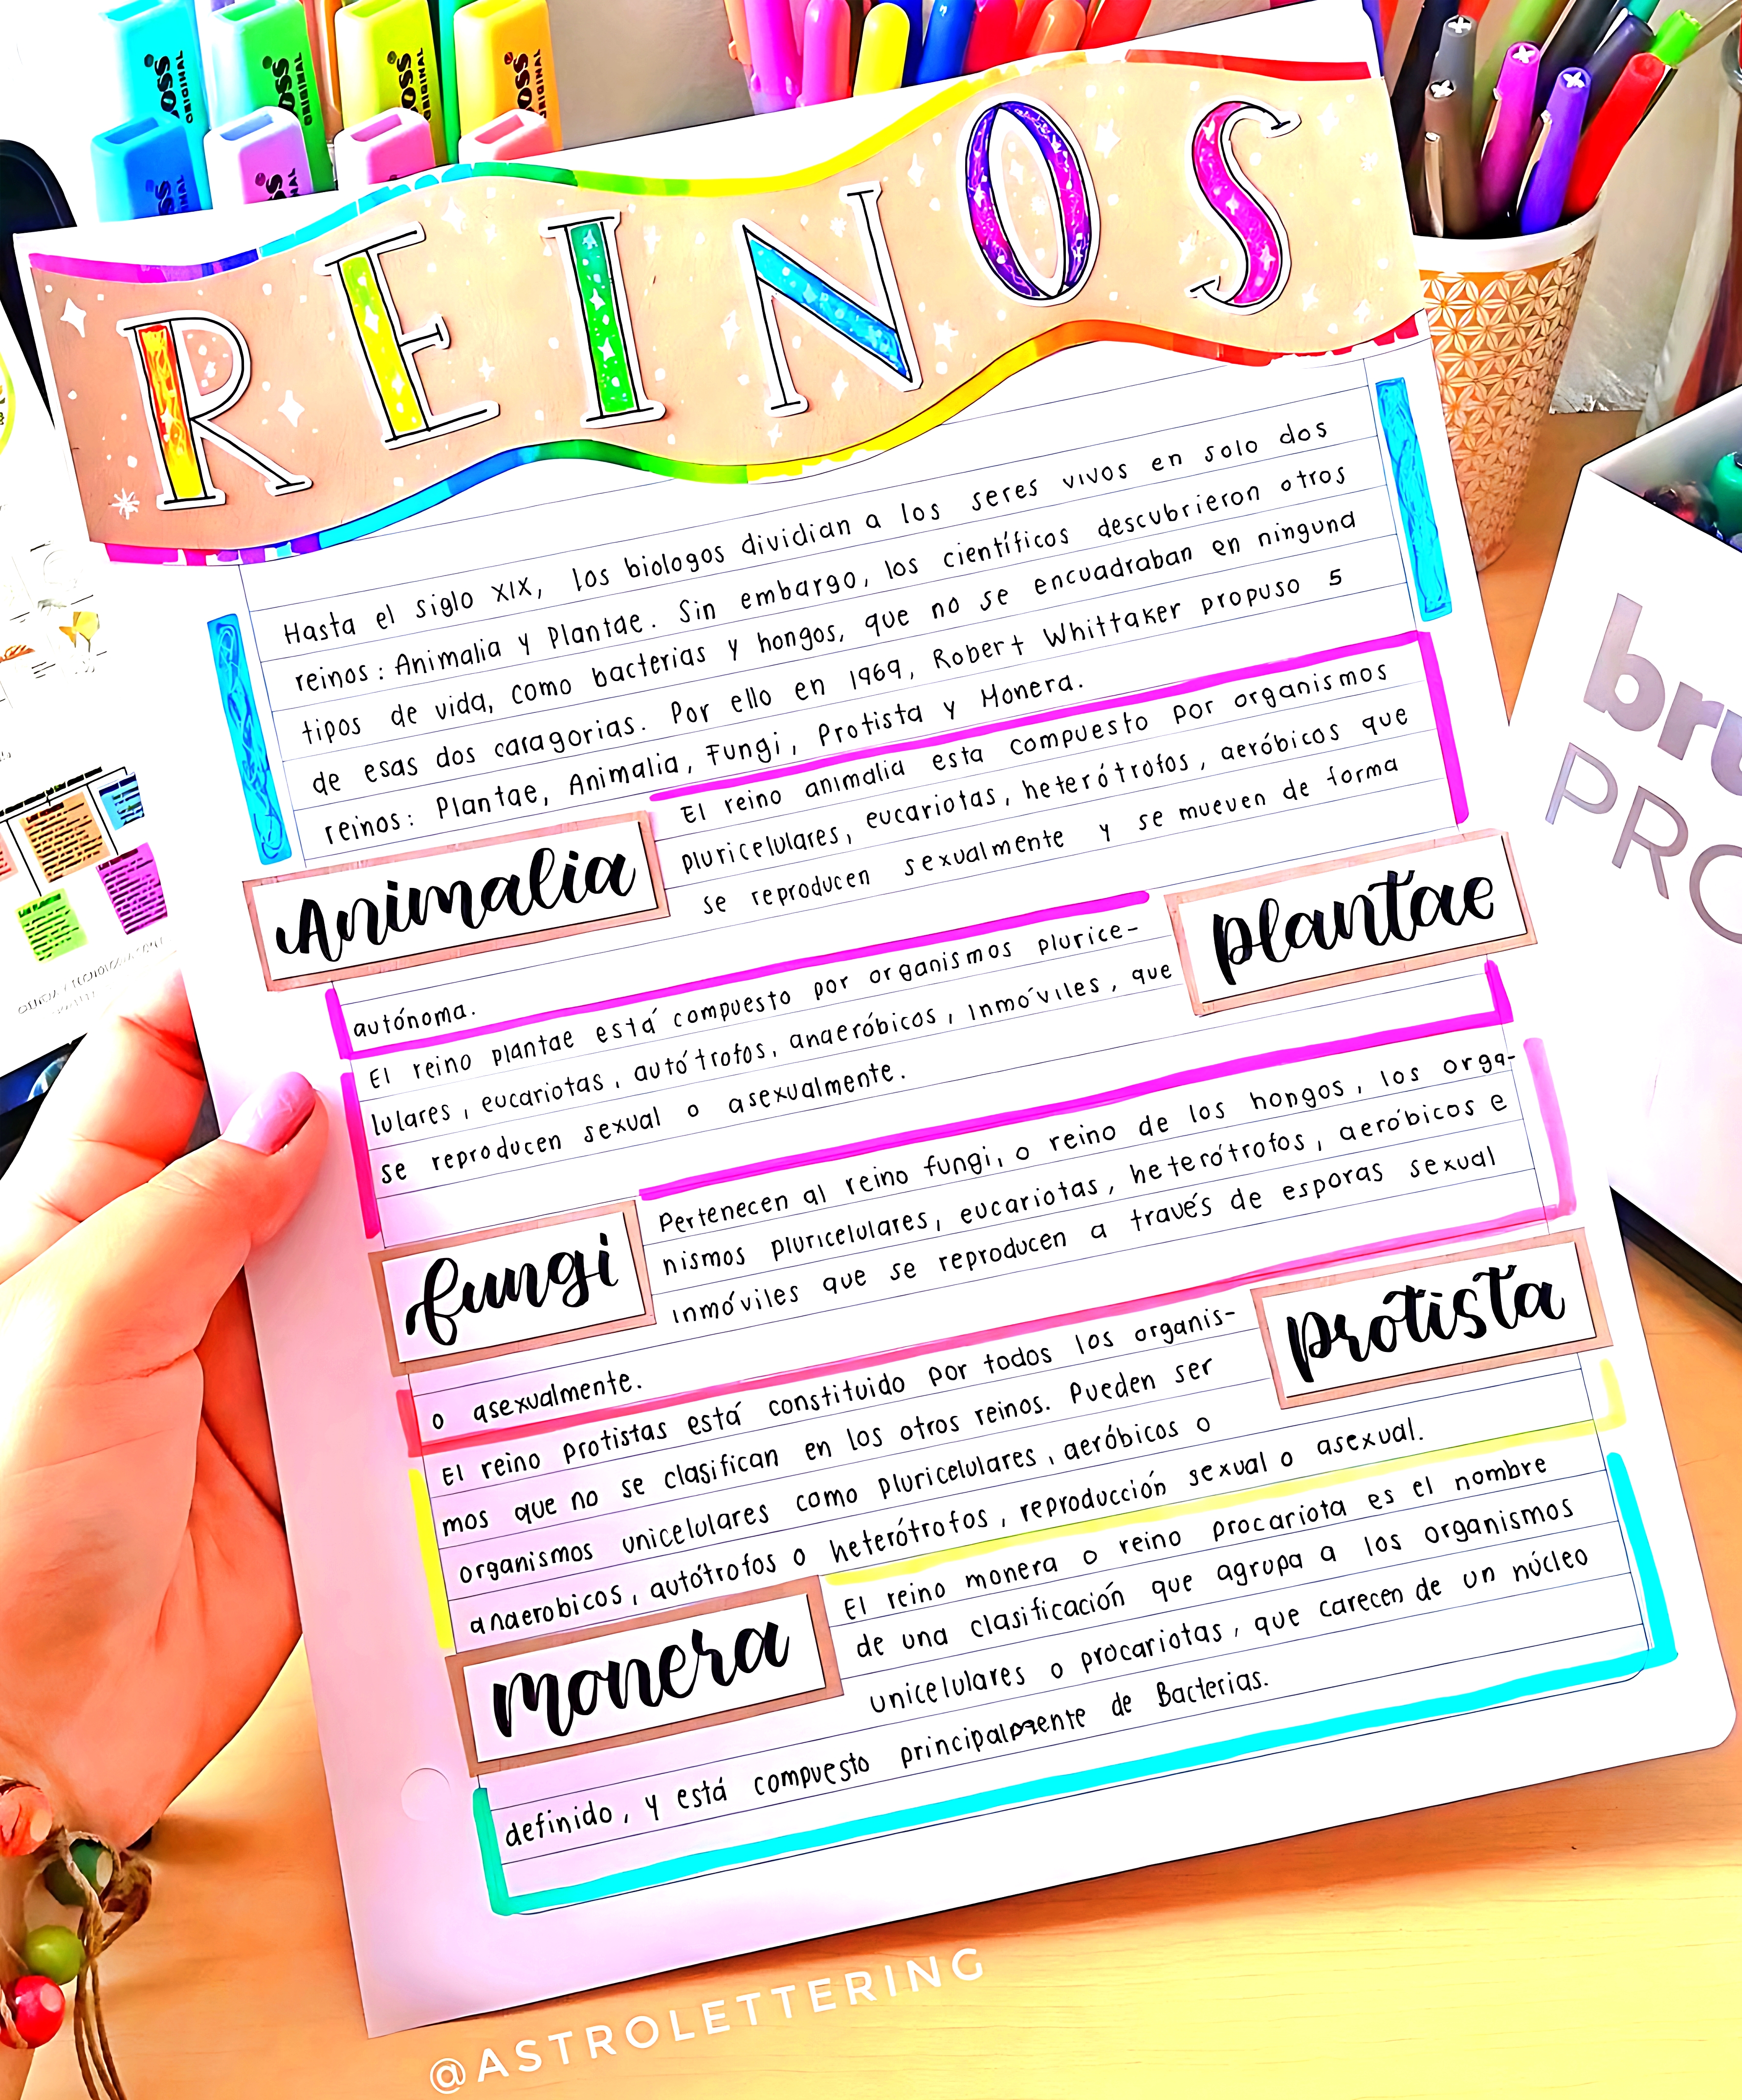 BOSS ORIGINAL
REINOS
Hasta el siglo XIX, los biologos dividian a los seres vivos en solo dos
reinos: Animalia y Plantae. Sin embargo, los científicos descubrieron otros
tipos de vida, como bacterias y hongos, que no se encuadraban en ninguna
de esas dos caragorias. Por ello en 1969, Robert Whittaker propuso 5
reinos: Plantae, Animalia, Fungi, Protista y Monera.
Animalia
El reino animalia esta compuesto por organismos
pluricelulares, eucariotas, heterótrofos, aeróbicos que
se reproducen sexualmente y se mueven de forma
autónoma.
plantae
El reino plantae está compuesto por organismos plurice-
lulares, eucariotas, autótrofos, anaeróbicos, Inmóviles, que
se reproducen sexual o asexualmente.
fungi
Pertenecen al reino fungi, o reino de los hongos, los orga-
nismos pluricelulares, eucariotas, heterótrofos, aeróbicos e
Inmóviles que se reproducen a través de esporas sexual
o asexualmente.
protista
El reino protistas está constituido por todos los organis-
mos que no se clasifican en los otros reinos. Pueden ser
organismos unicelulares como pluricelulares, aeróbicos o
anaerobicos, autótrofos o heterótrofos, reproducción sexual o asexual.
monera
El reino monera o reino procariota es el nombre
de una clasificación que agrupa a los organismos
unicelulares o procariotas, que carecen de un núcleo
definido, y está compuesto principalmente de Bacterias.
bru
PRO
@ASTROLETTERING